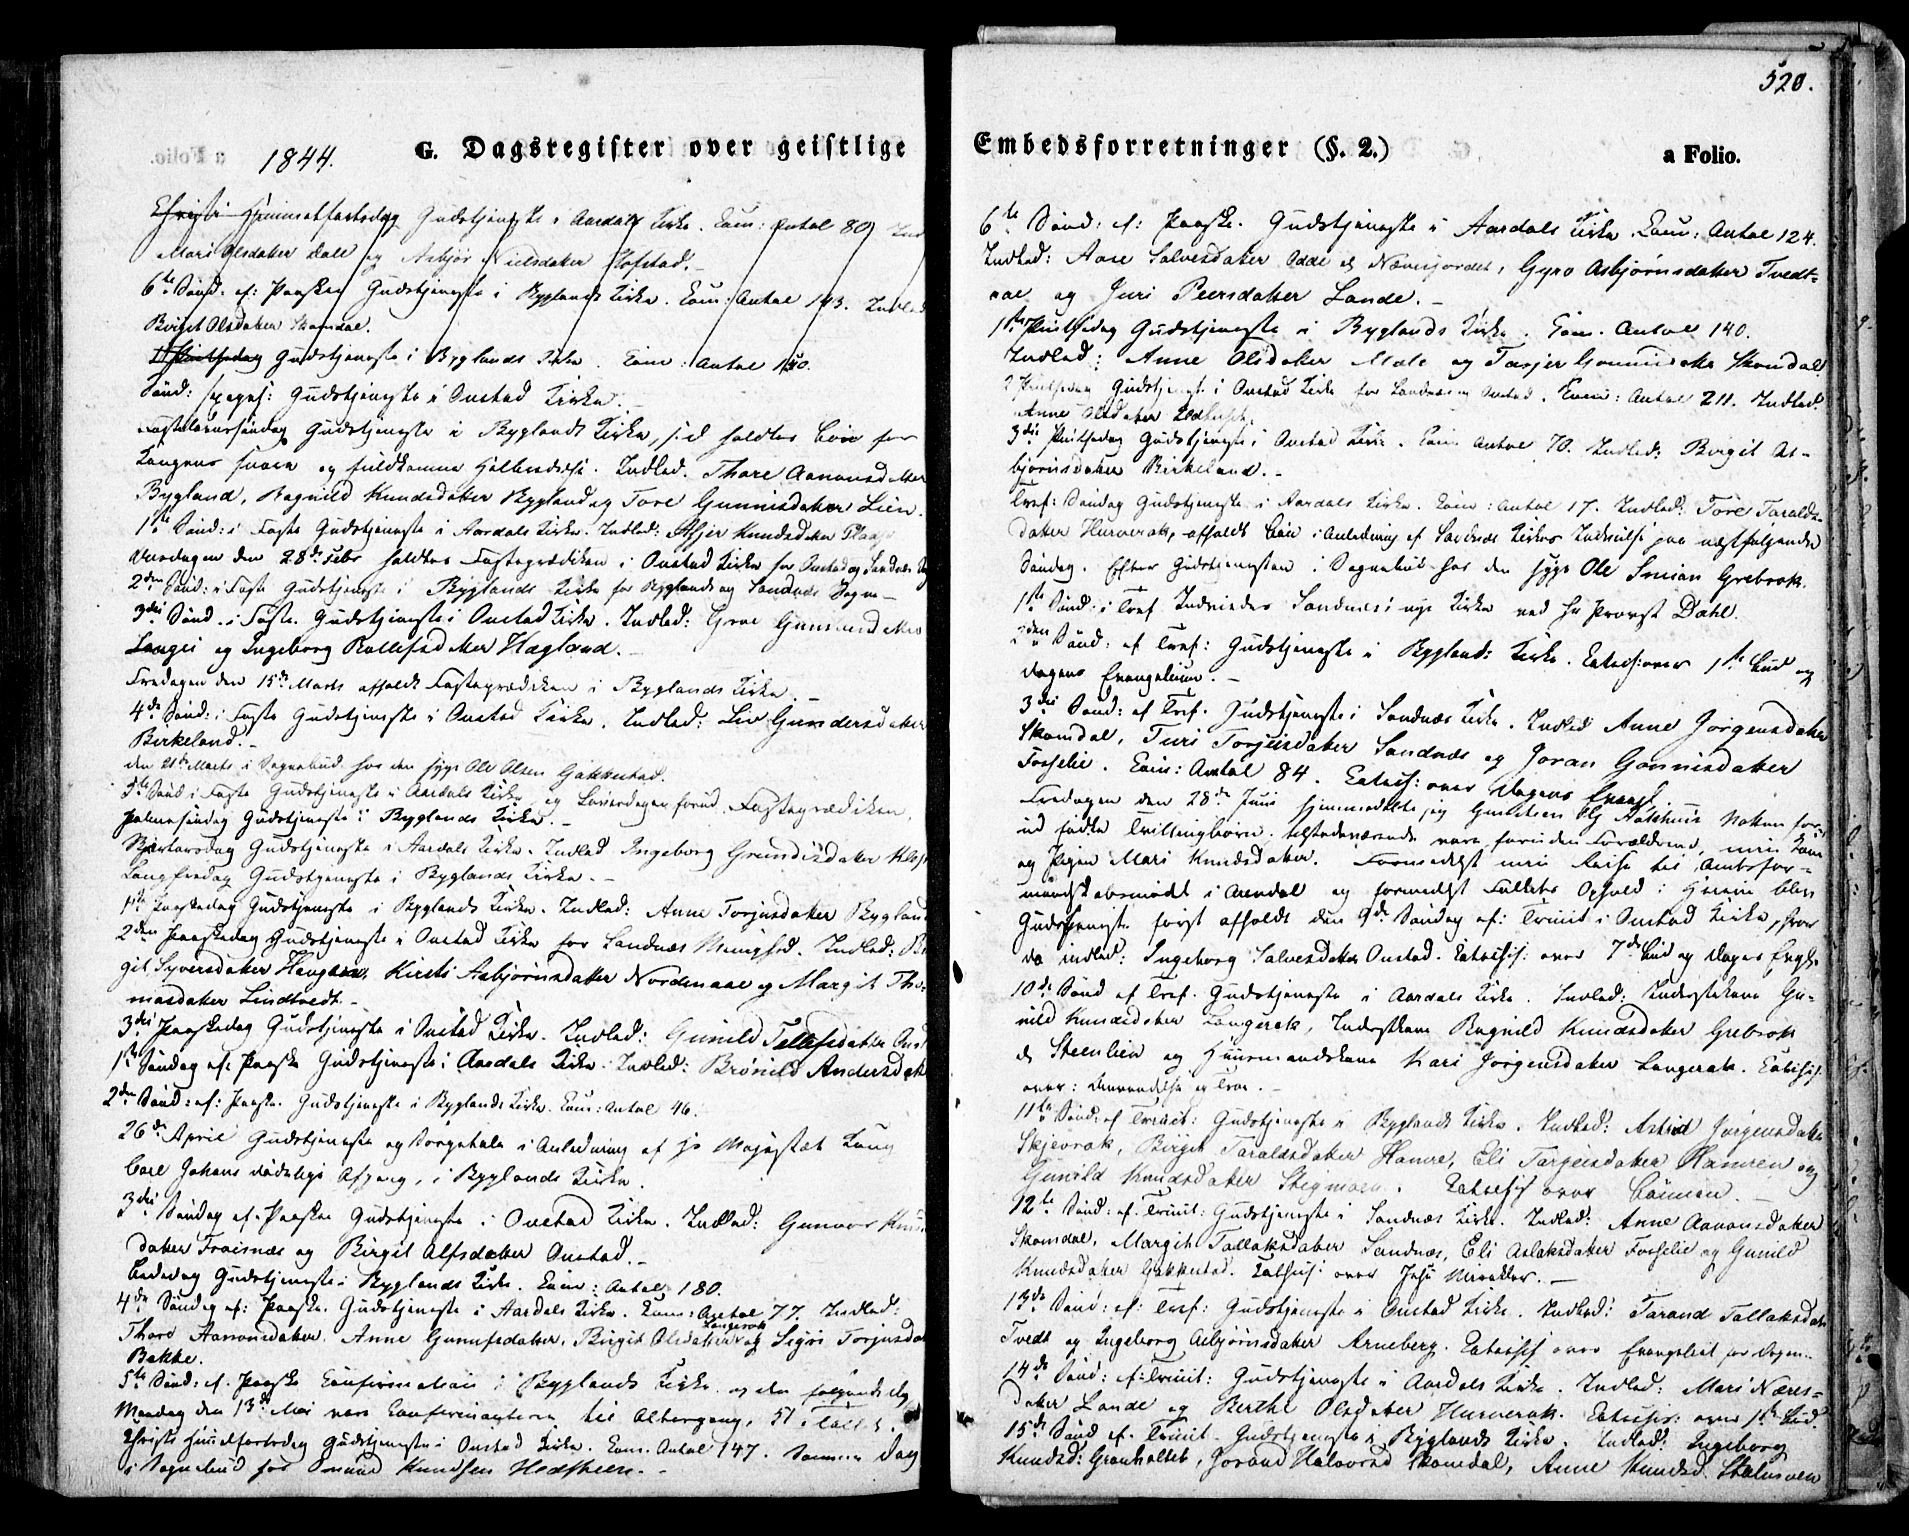 1844.
G. Dagsregister over geistlige
Christi Himmelfartsdag Gudstjeneste i Aardals Kirke. Com: Antal 80. Indl
Mari Olsdatter Dale og Asbjør Nielsdatter Hofstad.
6te Sønd. ef: Paaske Gudstjeneste i Byglands Kirke. Com: Antal 143. Indled
Birgit Olsdatter Skomdal.
1 Pintsedag Gudstjeneste i Byglands Kirke. Com: Antal 140.
Sønd: sexages: Gudstjeneste i Oustad Kirke.
Fastelavnssøndag Gudstjeneste i Byglands Kirke, holdtes Bøn for
Kongens snare og fuldkomne Helbredelse. Indled. Thore Aanonsdatter
Bygland, Ragnild Knudsdatter Bygland og Tore Gunnisdatter Lien.
1te Sønd: i Faste Gudstjeneste i Aardals Kirke. Indled: Knudsdatter
Onsdagen den 28de Febr holdtes Fasteprædiken i Oustad Kirke for Oustad og Sandnæs
2den Sønd: i Faste Gudstjeneste i Byglands Kirke for Byglands og Sandnæs Sogne
3die Sønd. i Faste. Gudstjeneste i Oustad Kirke. Indled: Groe
Longei og Ingeborg Rollefsdatter Hagland.
Fredagen den 15de Marts afholdt Fasteprædiken i Byglands Kirke.
4de Sønd: i Faste Gudstjeneste i Oustad Kirke. Indled: Liv Gundersdatter
Birkeland.
den 21de Marts i Sognebud hos den syge Ole Olsen Gakkestad.
5te Sønd i Faste Gudstjeneste i Aardals Kirke og Løverdagen forud Fasteprædiken.
Palmesøndag Gudstjeneste i Byglands Kirke.
Skjertorsdag Gudstjeneste i Aardals Kirke. Indled Ingeborg
Langfredag Gudstjeneste i Byglands Kirke.
1ste Paaskedag Gudstjeneste i Byglands Kirke. Indled: Anne Torjusdatter Bygland
2den Paaskedag Gudstjeneste i Oustad Kirke for Sandnæs Menighed. Indled: Bir
git Syversdatter Haugaa, Kirsti Asbjørnsdatter Nordenaae og Margit Tho-
masdatter Lindtvedt.
3die Paaskedag Gudstjeneste i Oustad Kirke. Indled: Gunild Tallefsdatter
1ste Søndag ef: Paaske Gudstjeneste i Aardals Kirke. Indled: Brønild Andersdatt
2den Sønd: ef: Paaske. Gudstjeneste i Byglands Kirke. Com: Antal 46.
26de April Gudstjeneste og Sørgetale i Anledning af hs Majestæt Kong
Carl Johans dødelige Afgang, i Byglands Kirke.
3die Søndag ef. Paaske Gudstjeneste i Oustad Kirke. Indled: Gunvor Knud
datter Froisnæs og Birgit Alfsdatter Oustad.
Bededag Gudstjeneste i Byglands Kirke. Com: Antal 180.
4de Søndag ef: Paaske. Gudstjeneste i Aardals Kirke. Com: Antal 77. Indled:
Thore Aanonsdatter, Anne Gunufsdatter, Birgit Olsdatter Langerak og Sigri Torjusdat
Bakke.
5te Sønd: ef. Paaske Confirmation i Byglands Kirke og den følgende dag
Mandag den 13de Mai vare Confirmanterne til Altergang, 51 i Tallet.
Christi Himmelfartsdag Gudstjeneste i Oustad Kirke. Com. Antal 147. Samme Dag
i Sognebud hos Knudsen Heddsteen.
520.
Embedsforretninger (§. 2.)
a Folio.
6te Sønd: ef: Paaske. Gudstjeneste i Aardals Kirke. Com: Antal 124.
Indled: Aase Salvesdatter Odde Næsisjordet, Gyro Asbjørnsdatter Tvedt-
aae og Juri Peersdatter Lande.
1ste Pintsedag Gudstjeneste i Byglands Kirke. Com. Antal 140.
Indled: Anne Olsdatter Mole og Tarjer Gonnisdatter Skomdal.
2 Pintsedag Gudstjenest i Oustad Kirke for Sandnæs og Oustad. Com: Antal 211. Indled.
Anne Olsdatter
3die Pintsedag Gudstjeneste i Oustad Kirke. Com Antal 70. Indled: Birgit As-
bjørnsdatter Birkeland.
Tref: Søndag Gudstjeneste i Aardals Kirke. Com: Antal 17. Indled: Tore Taralds-
datter Hurverak, afholdt Bøn i Anledning af Sandnæs Kirkes Indvielse paa næstfølgende
Søndag. Efter Gudstjenesten i Sognebud hos den syge Ole Grebrok.
1ste Sønd: i Tref Indviedes Sandnæs nye Kirke ved Hr Provst Dahl.
2den Sønd: ef Tref: Gudstjeneste i Bygland: Kirke. Catech: over 1ste Bud og
Dagens Evangelium.
3die Sønd: ef Tref. Gudstjeneste i Sandnæs Kirke. Indled Anne Jørgensdatter
Skomdal, Turi Torjeisdatter Sandnæs og Joran Gonnisdatter
Fosselie. Com: Antal 84. Catech: over Dagens Evangel.
Fredagen den 28de Juni hjemmedøbte jeg
fødte Trillingbørn. tilstedeværende vare foruden Forældrene, min Kone
og Pigen Mari Knudsdatter. Formedelst min Reise til Amtsfor-
mandskabsmødet i Arendal og formedelst Folkets Ophold i Heiene blev
Gudstjeneste først afholdt den 9de Søndag ef: Trinit i Oustad Kirke, hvor
da indled: Ingeborg Salvesdatter Oustad. Catechis: over 7de Bud og Dagens Evgl.
10de Sønd ef Tref. Gudstjeneste i Aardals Kirke. Indled: Inderstekone Gu-
nild Knudsdatter Langerak, Inderstkone Ragnild Knudsdatter Grebrok
Steenlien og Huusmandskone Kari Jørgensdatter Langerak. Catechis.
over: Anvendelse og Troe.
11te Sønd: ef Trinit: Gudstjeneste i Byglands Kirke. Indled: Astrid Jørgensdatter
Skjevrak, Birget Taraldsdatter Hamre, Eli Targeisdatter Hamren og
Gunild Knudsdatter Stegmoen. Catechis over Bønnen.
12te Sønd: ef: Trinit: Gudstjeneste i Sandnæs Kirke. Indled: Anne Aanonsdatter
Skomdal, Margit Tallaksdatter Sandnæs, Eli Aslaksdatter Fosselie og Gunild
Knudsdatter Gakkestad. Catechis: over Jesu Mirakler.
13de Sønd: ef: Tref: Gudstjeneste i Oustad Kirke. Indled: Tarand Tallaksdatt
Tvedt og Ingeborg Asbjørnsdatter Arneberg. Catechis over Evangeliet for Dagen.
14de Sønd: ef: Trinit: Gudstjeneste i Aardals Kirke. Indled: Mari Næres-
datter Lande og Berthe Olsdatter Hurverak. Catechis: over 1ste Bud.
15de Sønd ef. Trinit. Gudstjeneste i Byglands Kirke. Indled: Ingeborg
Knudsd: Granholtet, Joraad Halvorsd Skomdal, Anne Knudsd.